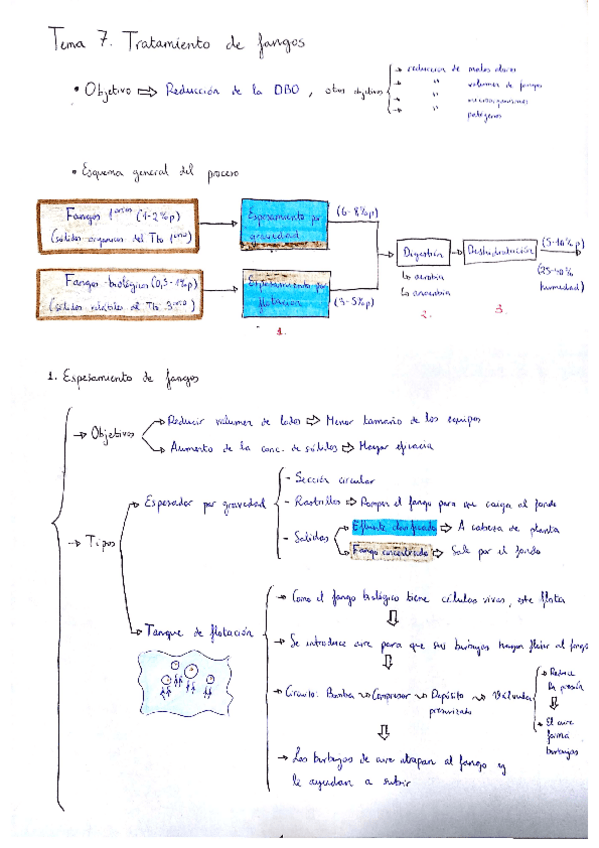 Tema 7. Tratamiento de fangos
• Objetivo ⇒ Reducción de la DBO, otros objetivos
→ reducción de malos olores
→ " volumen de fangos
→ " microorganismos
→ " patógenos
• Esquema general del proceso
Fangos 1arios (1-2%p)
(sólidos orgánicos del Tto 1ario)
Espesamiento por
gravedad
(6-8%p)
Fangos biológicos (0,5-1%p)
(sólidos del Tto
Espesamiento por
flotación
(3-5%p)
1.
Digestión
↳ aerobia
↳ anaerobia
2.
Deshidratación
3.
(5-10%p)
(25-40%
humedad)
1. Espesamiento de fangos
→ Objetivos
→ Reducir volumen de lodos ⇒ Menor tamaño de los equipos
→ Aumento de la conc. de sólidos ⇒ Mayor eficacia
→ Tipos
→ Espesador por gravedad
- Sección circular
- Rastrillos ⇒ Rompen el fango para que caiga al fondo
- Salidas
→ Efluente clarificado ⇒ A cabeza de planta
→ Fango concentrado ⇒ Sale por el fondo
→ Tanque de flotación
→ Como el fango biológico tiene células vivas, este flota
→ Se introduce aire para que sus burbujas hagan flotar al fango
→ Circuito: Bomba → Compresor → Depósito
presurizado
→ Válvula
→ Reduce
la presión
→ El aire
forma
burbujas
→ Las burbujas de aire atrapan al fango y
le ayudan a subir